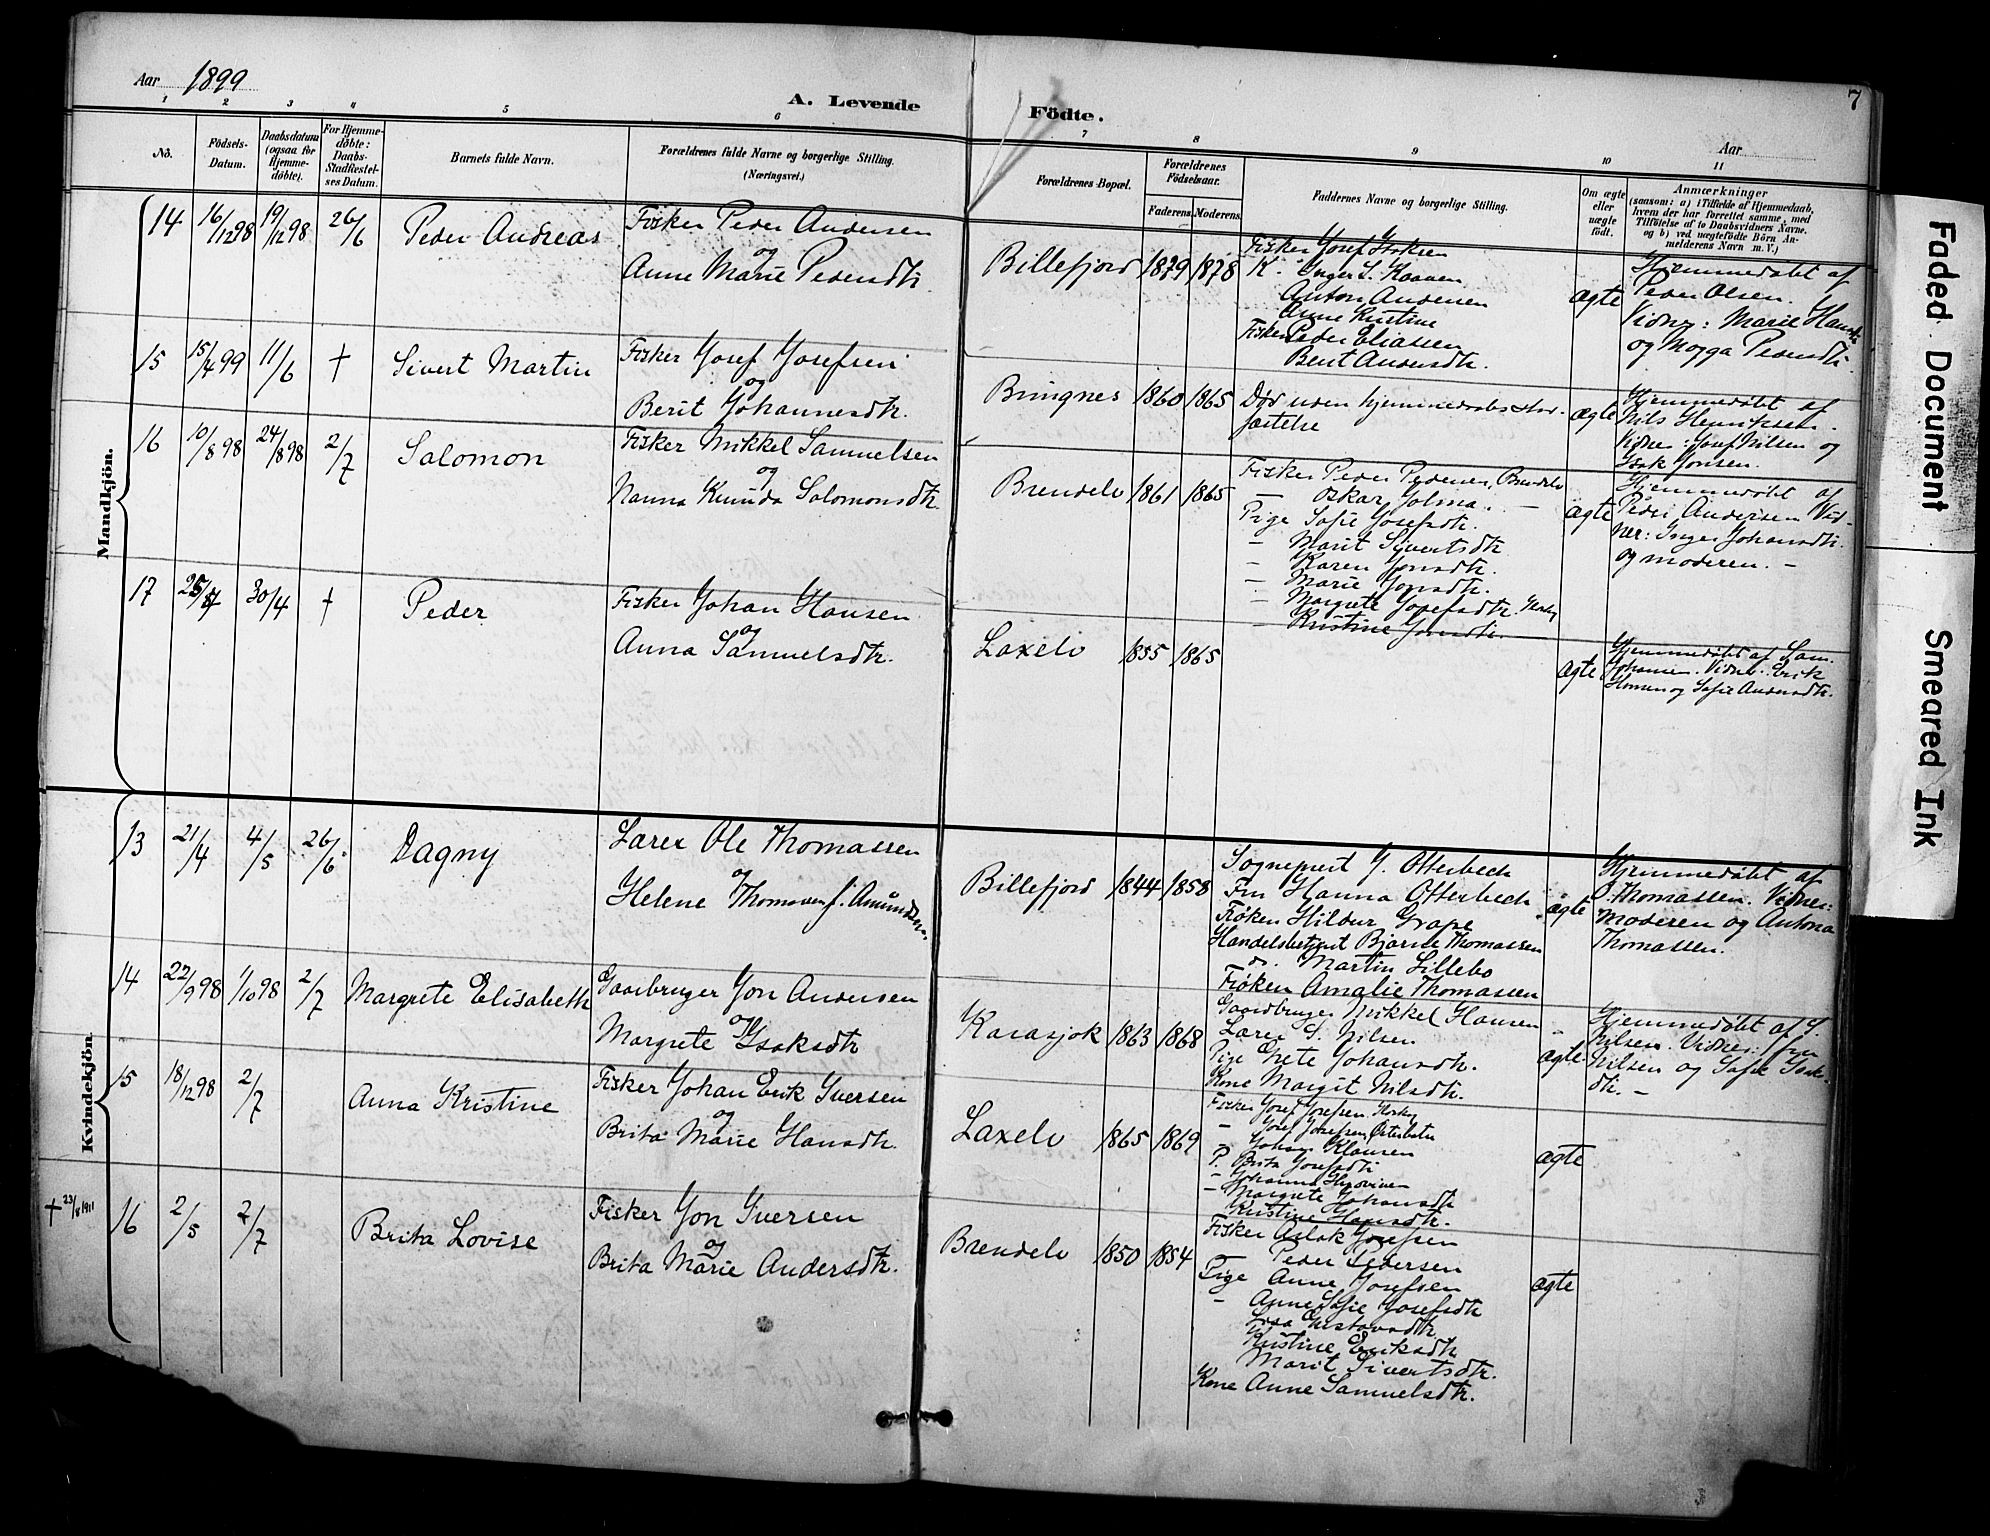 Aar 1899
A. Levende
Födte.
7
Aar
1 2 3 4 5 6 7 8 9 10 11
No.
Födsels-
Datum.
Daabsdatum
(ogsaa for
Hjemme-
døbte).
For Hjemme-
døbte:
Daabs-
Stadfæstel-
ses Datum.
Barnets fulde Navn.
Forældrenes fulde Navne og borgerlige Stilling.
(Næringsvei.)
Forældrenes Bopæl.
Forældrenes
Födselsaar.
Faderens.
Moderens.
Faddernes Navne og borgerlige Stilling.
Om ægte
eller
uægte
født.
Anmærkninger
(saasom: a) i Tilfælde af Hjemmedaab,
hvem der har forrettet samme, med
Tilföielse af to Daabsvidners Navne.
og b) ved uægtefödte Börn An-
melderens Navn m. V.)
Mandkjön.
14
16/12 98
19/12 98
26/6
Peder Andreas
Fisker Peder Andersen
og
Anne Marie Pedersdtr.
Billefjord
1879
1878
Fisker Josef Isaksen
K. Inger S. Kaaven
Anton Andersen
Anne Kristine
Fisker Peder Eliassen
Berit Andersdtr.
ægte
Hjemmedøbt af
Peder Olsen.
Vidner: Marie Hansdtr
og Mogga Pedersdtr.
15
15/4 99
11/6
+
Sivert Martin
Fisker Josef Josefsen
og
Berit Johannesdtr.
Bringnes
1860
1865
Død uden hjemmedaabs stad-
fæstelse
ægte
Hjemmedøbt af
Nils Henriksen.
Vidner: Josef Nilsen og
Isak Jonsen.
16
10/8 98
24/8 98
2/7
Salomon
Fisker Mikkel Samuelsen
og
Nanna Kunida Salomonsdtr.
Brendelv
1861
1865
Fisker Peder Pedersen, Brendelv
— Oskar Jolma. —
Pige Sofie Josefsdtr.
— Marit Sivertsdtr
— Karen Jonsdtr.
— Marie Jonsdtr.
— Margrete Josefsdtr.
— Kristine Jonsdtr.
ægte
Hjemmedøbt af
Peder Andersen Vid-
ner: Inger Johansdtr.
og moderen. —
17
30/4
+
Peder
Fisker Johan Hansen
og
Anna Samuelsdtr.
Laxelv
1855
1865
ægte
Hjemmedøbt af Sam.
Johansen. Vidner: Erik
Hansen og Sofie Andersdtr.
Kvindekjön.
13
21/4
4/5
26/6
Dagny
Lærer Ole Thomassen
og
Helene Thomassen f. Amundsen.
Billefjord
1844
1858
Sogneprest J. Otterbech
Fru Hanna Otterbech
Frøken Hildur Grape
Handelsbetjent Bjarne Thomassen
do. Martin Lillebo
Frøken Amalie Thomassen
ægte
Hjemmedøbt af
O. Thomassen. Vidner:
Moderen og Antona
Thomassen.
14
22/9 98
1/10 98
2/7
Margrete Elisabeth
Gaardbruger Jon Andersen
og
Margrete Isaksdtr
Karasjok
1863
1868
Gaardbruger Mikkel Hansen
Lærer S. Nilsen
Pige Grete Johansdtr.
Kone Margit Nilsdtr.
ægte
Hjemmedøbt af S.
Nilsen. Vidner: fru
Nilsen og Sofie Isaks-
dtr. —
15
18/12 98
2/7
Anna Kristine
Fisker Johan Erik Iversen
og
Brita Marie Hansdtr.
Laxelv
1865
1869
Fisker Josef Josefsen
— Josef Josefsen, Østerbotn
— Johan Klausen
P. Brita Josefsdtr
— Johanna
— Margrete Johansdtr
Kristine Hansdtr.
ægte
+ 23/8 1911
16
2/5
2/7
Brita Lovise
Fisker Jon Iversen
og
Brita Marie Andersdtr.
Brendelv
1850
1854
Fisker Aslak Josefsen
Peder Pedersen
Pige Anne Josefsen
— Anne Sofie Josefsdtr
Lisa Gustavsdtr
Kristine Eriksdtr
Marit Sivertsdtr.
Kone Anne Samuelsdtr.
ægte
Faded Document
Smeared Ink